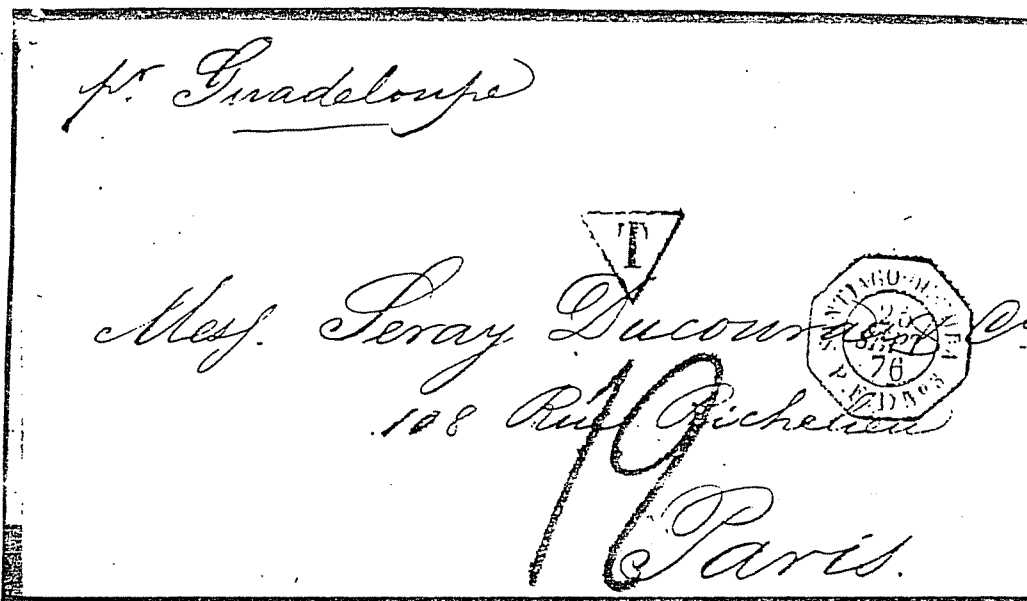 pr. Guadeloupe
T
Mess. Seray, Ducouray & Co.
SANTIAGO-DE-CUBA
23
SEPT
76
P. FR. D No 3
108 Rue Richelieu
19
Paris.